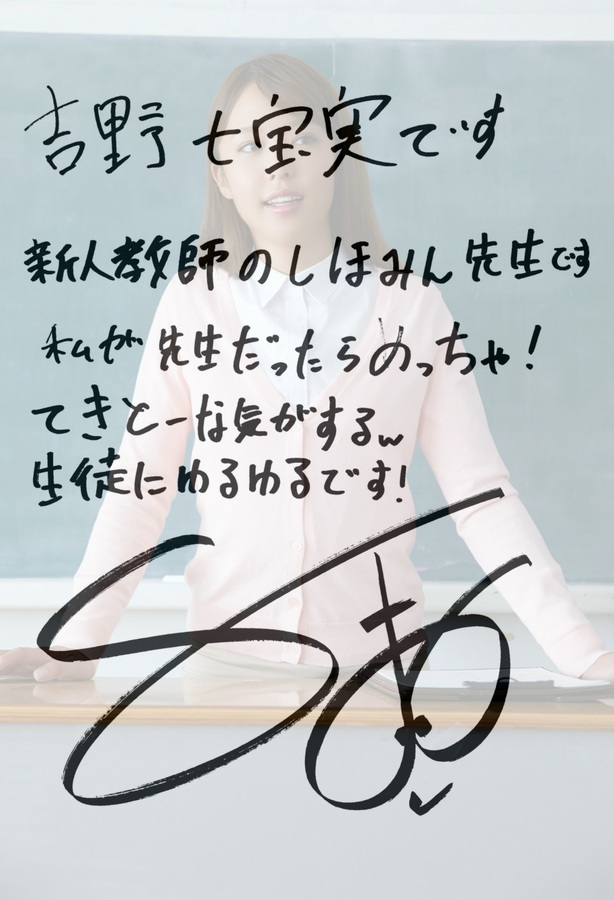 吉野七宝実です
新人教師のしほみん先生です
私が先生だったらめっちゃ!
てきとーな気がするw
生徒にゆるゆるです!